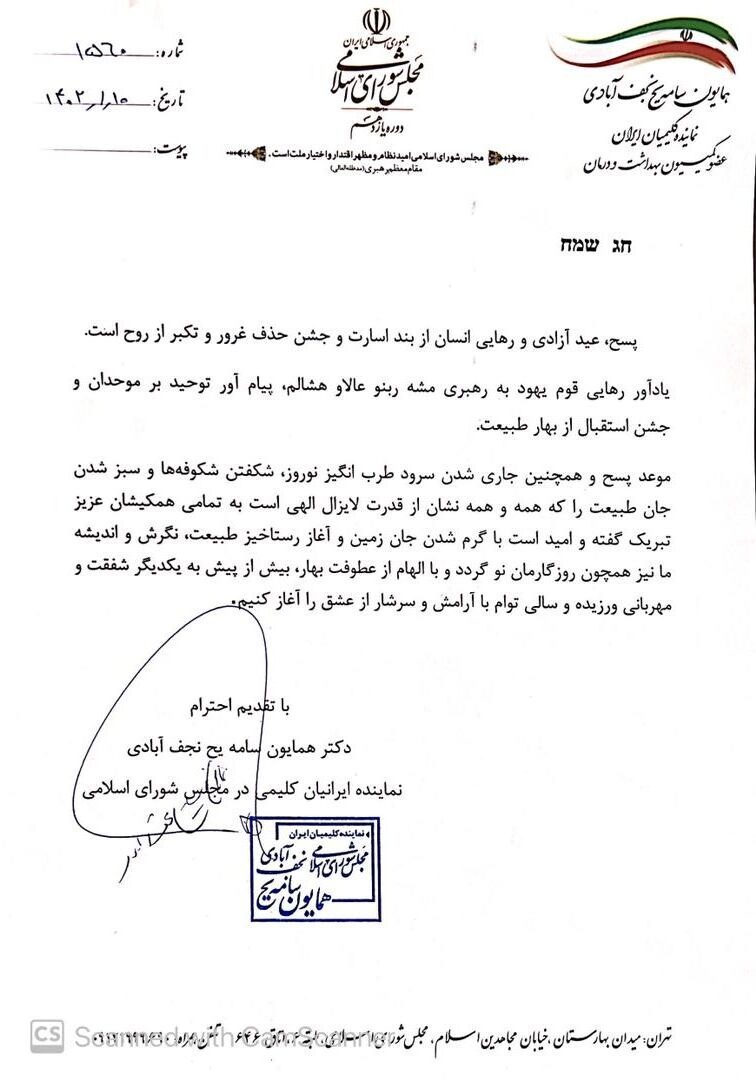 جمهوری اسلامی ایران
مجلس شورای اسلامی
دوره یازدهم
مجلس شورای اسلامی امید نظام و مظهر اقتدار و اختیار ملت است.
مقام معظم رهبری (مدظله العالی)
همایون سامه یح نجف آبادی
نماینده کلیمیان ایران
عضو کمیسیون بهداشت و درمان
شماره: ۱۰۵۶۰
تاریخ: ۱۴۰۲/۱/۱۵
پیوست:
חג שמח
پسح، عید آزادی و رهایی انسان از بند اسارت و جشن حذف غرور و تکبر از روح است.
یادآور رهایی قوم یهود به رهبری مشه ربنو عالاو هشالم، پیام آور توحید بر موحدان و
جشن استقبال از بهار طبیعت.
موعد پسح و همچنین جاری شدن سرود طرب انگیز نوروز، شکفتن شکوفه‌ها و سبز شدن
جان طبیعت را که همه و همه نشان از قدرت لایزال الهی است به تمامی همکیشان عزیز
تبریک گفته و امید است با گرم شدن جان زمین و آغاز رستاخیز طبیعت، نگرش و اندیشه
ما نیز همچون روزگارمان نو گردد و با الهام از عطوفت بهار، بیش از پیش به یکدیگر شفقت و
مهربانی ورزیده و سالی توام با آرامش و سرشار از عشق را آغاز کنیم.
با تقدیم احترام
دکتر همایون سامه یح نجف آبادی
نماینده ایرانیان کلیمی در مجلس شورای اسلامی
نماینده کلیمیان ایران
مجلس شورای اسلامی
نجف آبادی
همایون سامه یح
تهران: میدان بهارستان، خیابان مجاهدین اسلام، مجلس شورای اسلامی، طبقه ۶، اتاق ۶۴۶ تلفن همراه:
CS Scanned with CamScanner